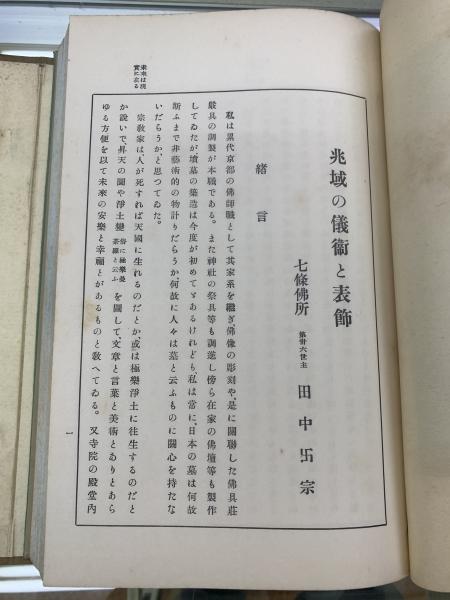 未來は現
實に在る
兆域の儀衞と表飾
七條佛所 第卅六世主 田中卍宗
緖言
私は累代京都の佛師職として其家系を繼ぎ佛像の彫刻や、是に關聯した佛具莊
嚴具の調製が本職である。また神社の祭具等も調進し傍ら在家の佛壇等も製作
してゐたが墳墓の築造は今度が初めてゞあるけれども、私は常に、日本の墓は何故
斯ふまで非藝術的の物計りだらうか、何故に人々は墓と云ふものに關心を持たな
いだらうか、と思つてゐた。
宗敎家は、人が死すれば天國に生れるのだとか、或は極樂淨土に往生するのだと
か說いで昇天の圖や淨土變 俗に極樂曼荼羅と云ふ を圖して、文章と言葉と美術とありとあら
ゆる方便を以て未來の安樂と幸福とがあるものと敎へてゐる。又寺院の殿堂內
一